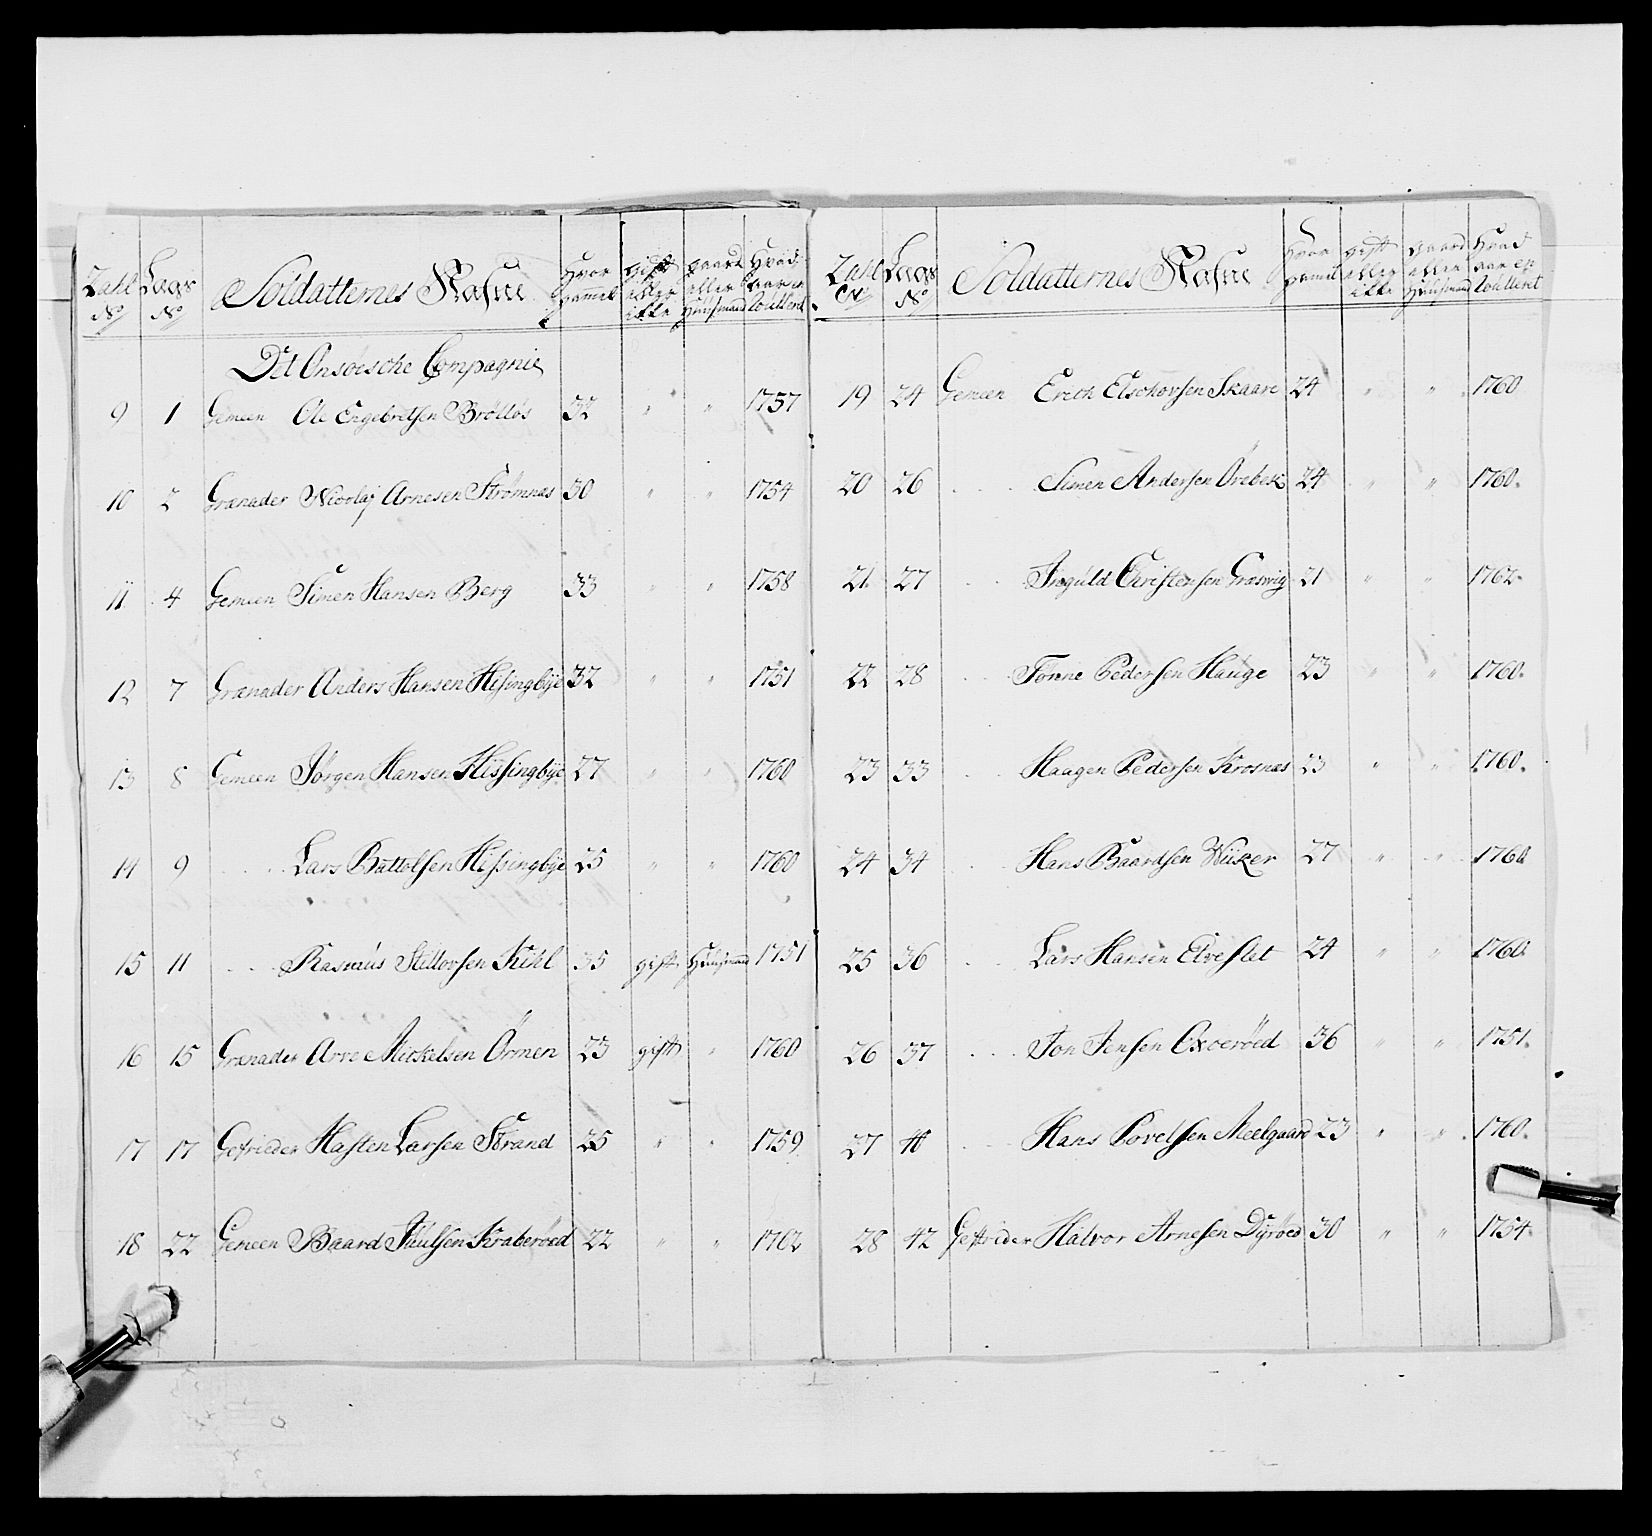 Zahl No Lægs No Soldatternes Nafne Hvor gammel gift eller ikke gaard eller Huusmand Hvad aar er Rulleret
Det Onsöesche Compagnie
9 1 Gemeen Ole Engebretsen Bröllös 32 " " 1757
10 2 Grænader Nicolaj Arnesen Strømnæs 30 " " 1754
11 4 Gemeen Simen Hansen Berg 33 " " 1758
12 7 Grænader Anders Hansen Hissingbÿe 32 " " 1751
13 8 Gemeen Jørgen Hansen Hissingbÿe 27 " " 1760
14 9 Lars Battolfsen Hissingbÿe 25 " " 1760
15 11 Rasmus Stellovsen Kihl 35 gift Huusmand 1751
16 15 Grænader Arve Mickelsen Örmen 23 gift " 1760
17 17 Gefrieder Hasten Larsen Strand 25 " " 1759
18 22 Gemeen Baard Juulsen Kraberöed 22 " " 1762
Zahl No Lægs No Soldatternes Nafne Hvor gammel gift eller ikke gaard eller Huusmand Hvad aar er Rulleret
19 24 Gemeen Erich Elschovsen Skaare 24 " " 1760
20 26 Simen Andersen Örebek 24 " " 1760.
21 27 Inguld Christensen Græsvig 21 " " 1762.
22 28 Tönne Pedersen Hauge 23 " " 1760.
23 33 Haagen Pedersen Krosnæs 23 " " 1760.
24 34 Hans Baardsen Wiiker 27 " " 1760
25 36 Lars Hansen Elveslet 24 " " 1760.
26 37 Jon Jensen Oxeröed 36 " " 1751.
27 40 Hans Povelsen Meelgaard 23 " " 1760.
28 42 Gefrider Halvor Arnesen Dyröed 30 " " 1754.